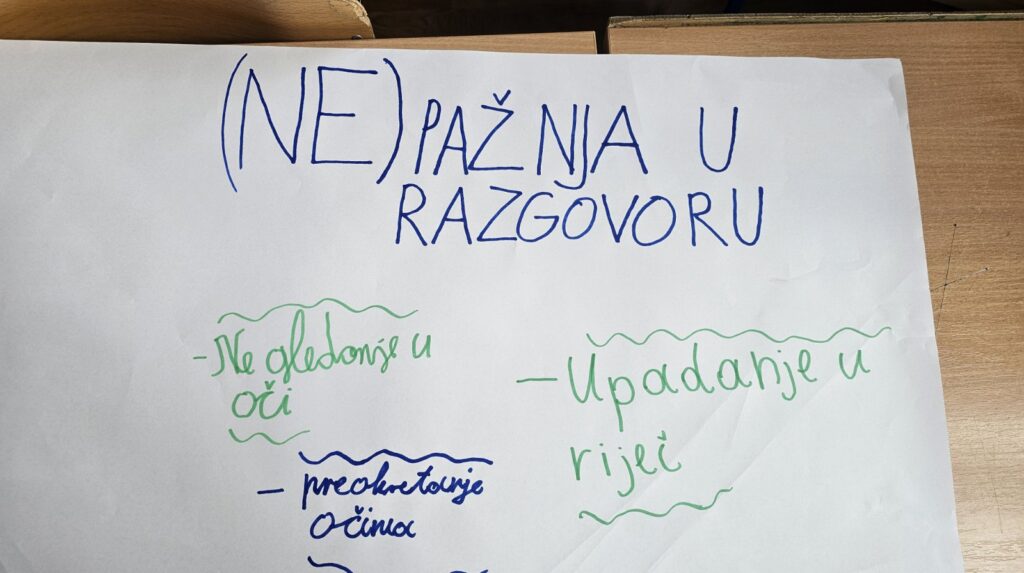 (NE) PAŽNJA U
RAZGOVORU
- Ne gledanje u
oči
- preokretanje
očima
- Upadanje u
riječ